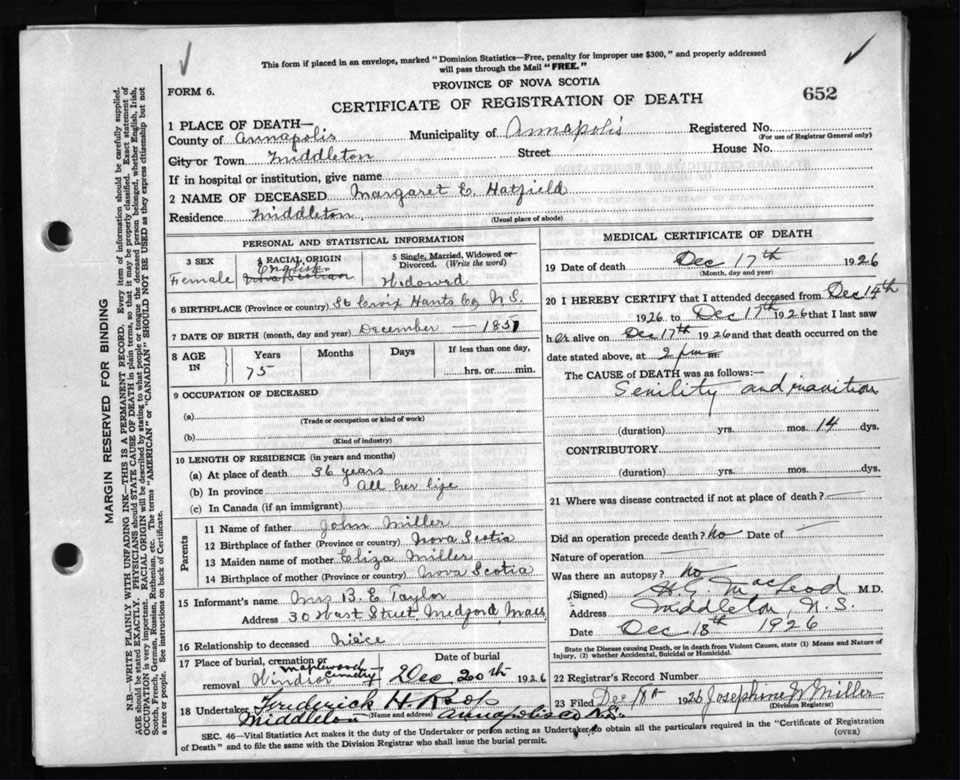 This form if placed in an envelope, marked "Dominion Statistics—Free, penalty for improper use $300," and properly addressed
will pass through the Mail "FREE."
PROVINCE OF NOVA SCOTIA
FORM 6.
CERTIFICATE OF REGISTRATION OF DEATH
652
1 PLACE OF DEATH—
County of Annapolis Municipality of Annapolis Registered No.
(For use of Registrar General only)
City or Town Middleton Street House No.
If in hospital or institution, give name
2 NAME OF DECEASED Margaret E. Hatfield
Residence Middleton
(Usual place of abode)
PERSONAL AND STATISTICAL INFORMATION
3 SEX 4 RACIAL ORIGIN 5 Single, Married, Widowed or Divorced. (Write the word)
Female English Nova Scotian Widowed
6 BIRTHPLACE (Province or country) St Croix Hants Co, N.S.
7 DATE OF BIRTH (month, day and year) December — 1851
8 AGE IN Years Months Days If less than one day,
75 hrs. or min.
9 OCCUPATION OF DECEASED
(a)
(Trade or occupation or kind of work)
(b)
(Kind of industry)
10 LENGTH OF RESIDENCE (in years and months)
(a) At place of death 36 years
(b) In province All her life
(c) In Canada (if an immigrant)
Parents
11 Name of father John Miller
12 Birthplace of father (Province or country) Nova Scotia
13 Maiden name of mother Eliza Miller
14 Birthplace of mother (Province or country) Nova Scotia
15 Informant's name Mrs B. E Taylor
Address 30 West Street, Medford, Mass
16 Relationship to deceased niece
17 Place of burial, cremation or removal Maplewood Cemetry Windsor
Date of burial Dec, 20th 1926
18 Undertaker Frederick H. Roop
Middleton (Name and address) Annapolis Co N.S.
MEDICAL CERTIFICATE OF DEATH
19 Date of death Dec 17th 1926
(Month, day and year)
20 I HEREBY CERTIFY that I attended deceased from Dec 14th
1926 to Dec 17th 1926 that I last saw
her alive on Dec 17th 1926 and that death occurred on the
date stated above, at 2 pm m
The CAUSE OF DEATH was as follows:—
Senility and inanition
(duration) yrs. mos. 14 dys.
CONTRIBUTORY
(duration) yrs. mos. dys.
21 Where was disease contracted if not at place of death?
Did an operation precede death? No Date of —
Nature of operation —
Was there an autopsy? No
(Signed) MacLeod M.D.
Address Middleton, N.S.
Date Dec 18th 1926
State the Disease causing Death, or in death from Violent Causes, state (1) Means and Nature of
Injury, (2) whether Accidental, Suicidal or Homicidal.
22 Registrar's Record Number
23 Filed Dec 1926 Josephine W Miller
(Division Registrar)
SEC. 46—Vital Statistics Act makes it the duty of the Undertaker or person acting as Undertaker to obtain all the particulars required in the "Certificate of Registration
of Death" and to file the same with the Division Registrar who shall issue the burial permit.
(OVER)
MARGIN RESERVED FOR BINDING
N.B.—WRITE PLAINLY WITH UNFADING INK—THIS IS A PERMANENT RECORD. Every item of information should be carefully supplied.
AGE should be stated EXACTLY. PHYSICIANS should STATE CAUSE OF DEATH in plain terms, so that it may be properly classified. Exact statement of
OCCUPATION is very important. RACIAL ORIGIN will be described by stating to what people or tongue the deceased person belonged, whether English, Irish,
Scotch, French, German, Russian, Ruthenian, etc. The terms "AMERICAN" or "CANADIAN" SHOULD NOT BE USED as they express citizenship but not
a race or people. See instructions on back of Certificate.